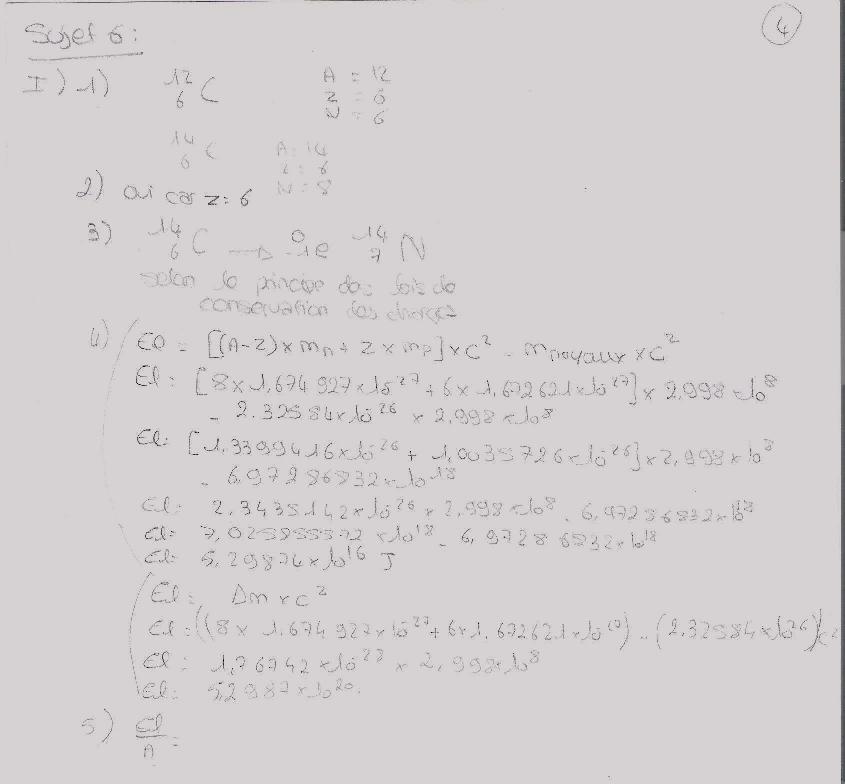 4
Sujet 6:
I) 1) ¹²₆C A = 12
Z = 6
N = 6
¹⁴₆C A: 14
Z: 6
N: 8
2) Oui car z: 6
3) ¹⁴₆C → ⁰₋₁e ¹⁴₇N
selon le principe des lois de
conservation des charges
4) El = [(A-Z) x mn + Z x mp] x c² - mnoyaux x c²
El: [8 x 1,674 927 x 10⁻²⁷ + 6 x 1,672621 x 10⁻²⁷] x 2,998 x 10⁸
- 2.32584 x 10⁻²⁶ x 2,998 x 10⁸
El: [1,3399416 x 10⁻²⁶ + 1,0035726 x 10⁻²⁶] x 2,998 x 10⁸
- 6,97286832 x 10⁻¹⁸
El: 2,3435142 x 10⁻²⁶ x 2,998 x 10⁸ - 6,97286832 x 10⁻¹⁸
El: 7,025855572 x 10⁻¹⁸ - 6,97286832 x 10⁻¹⁸
El: 5,29874 x 10⁻¹⁶ J
El: Δm x c²
El: ((8 x 1,674 927 x 10⁻²⁷ + 6 x 1,672621 x 10⁻²⁷) - (2.32584 x 10⁻²⁶) x c²
El: 1,76742 x 10⁻²⁸ x 2,998 x 10⁸
El: 5,2987 x 10⁻²⁰.
5) El/A =